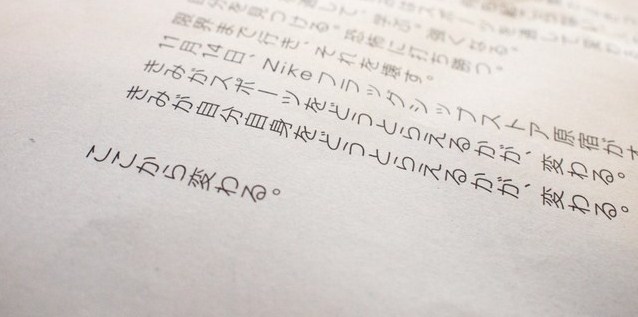 自分を見つける。恐怖に打ち勝つ。
限界まで行き、それを壊す。
11月14日、Nikeフラッグシップストア原宿が
きみがスポーツをどうとらえるかが、変わる。
きみが自分自身をどうとらえるかが、変わる。
ここから変わる。